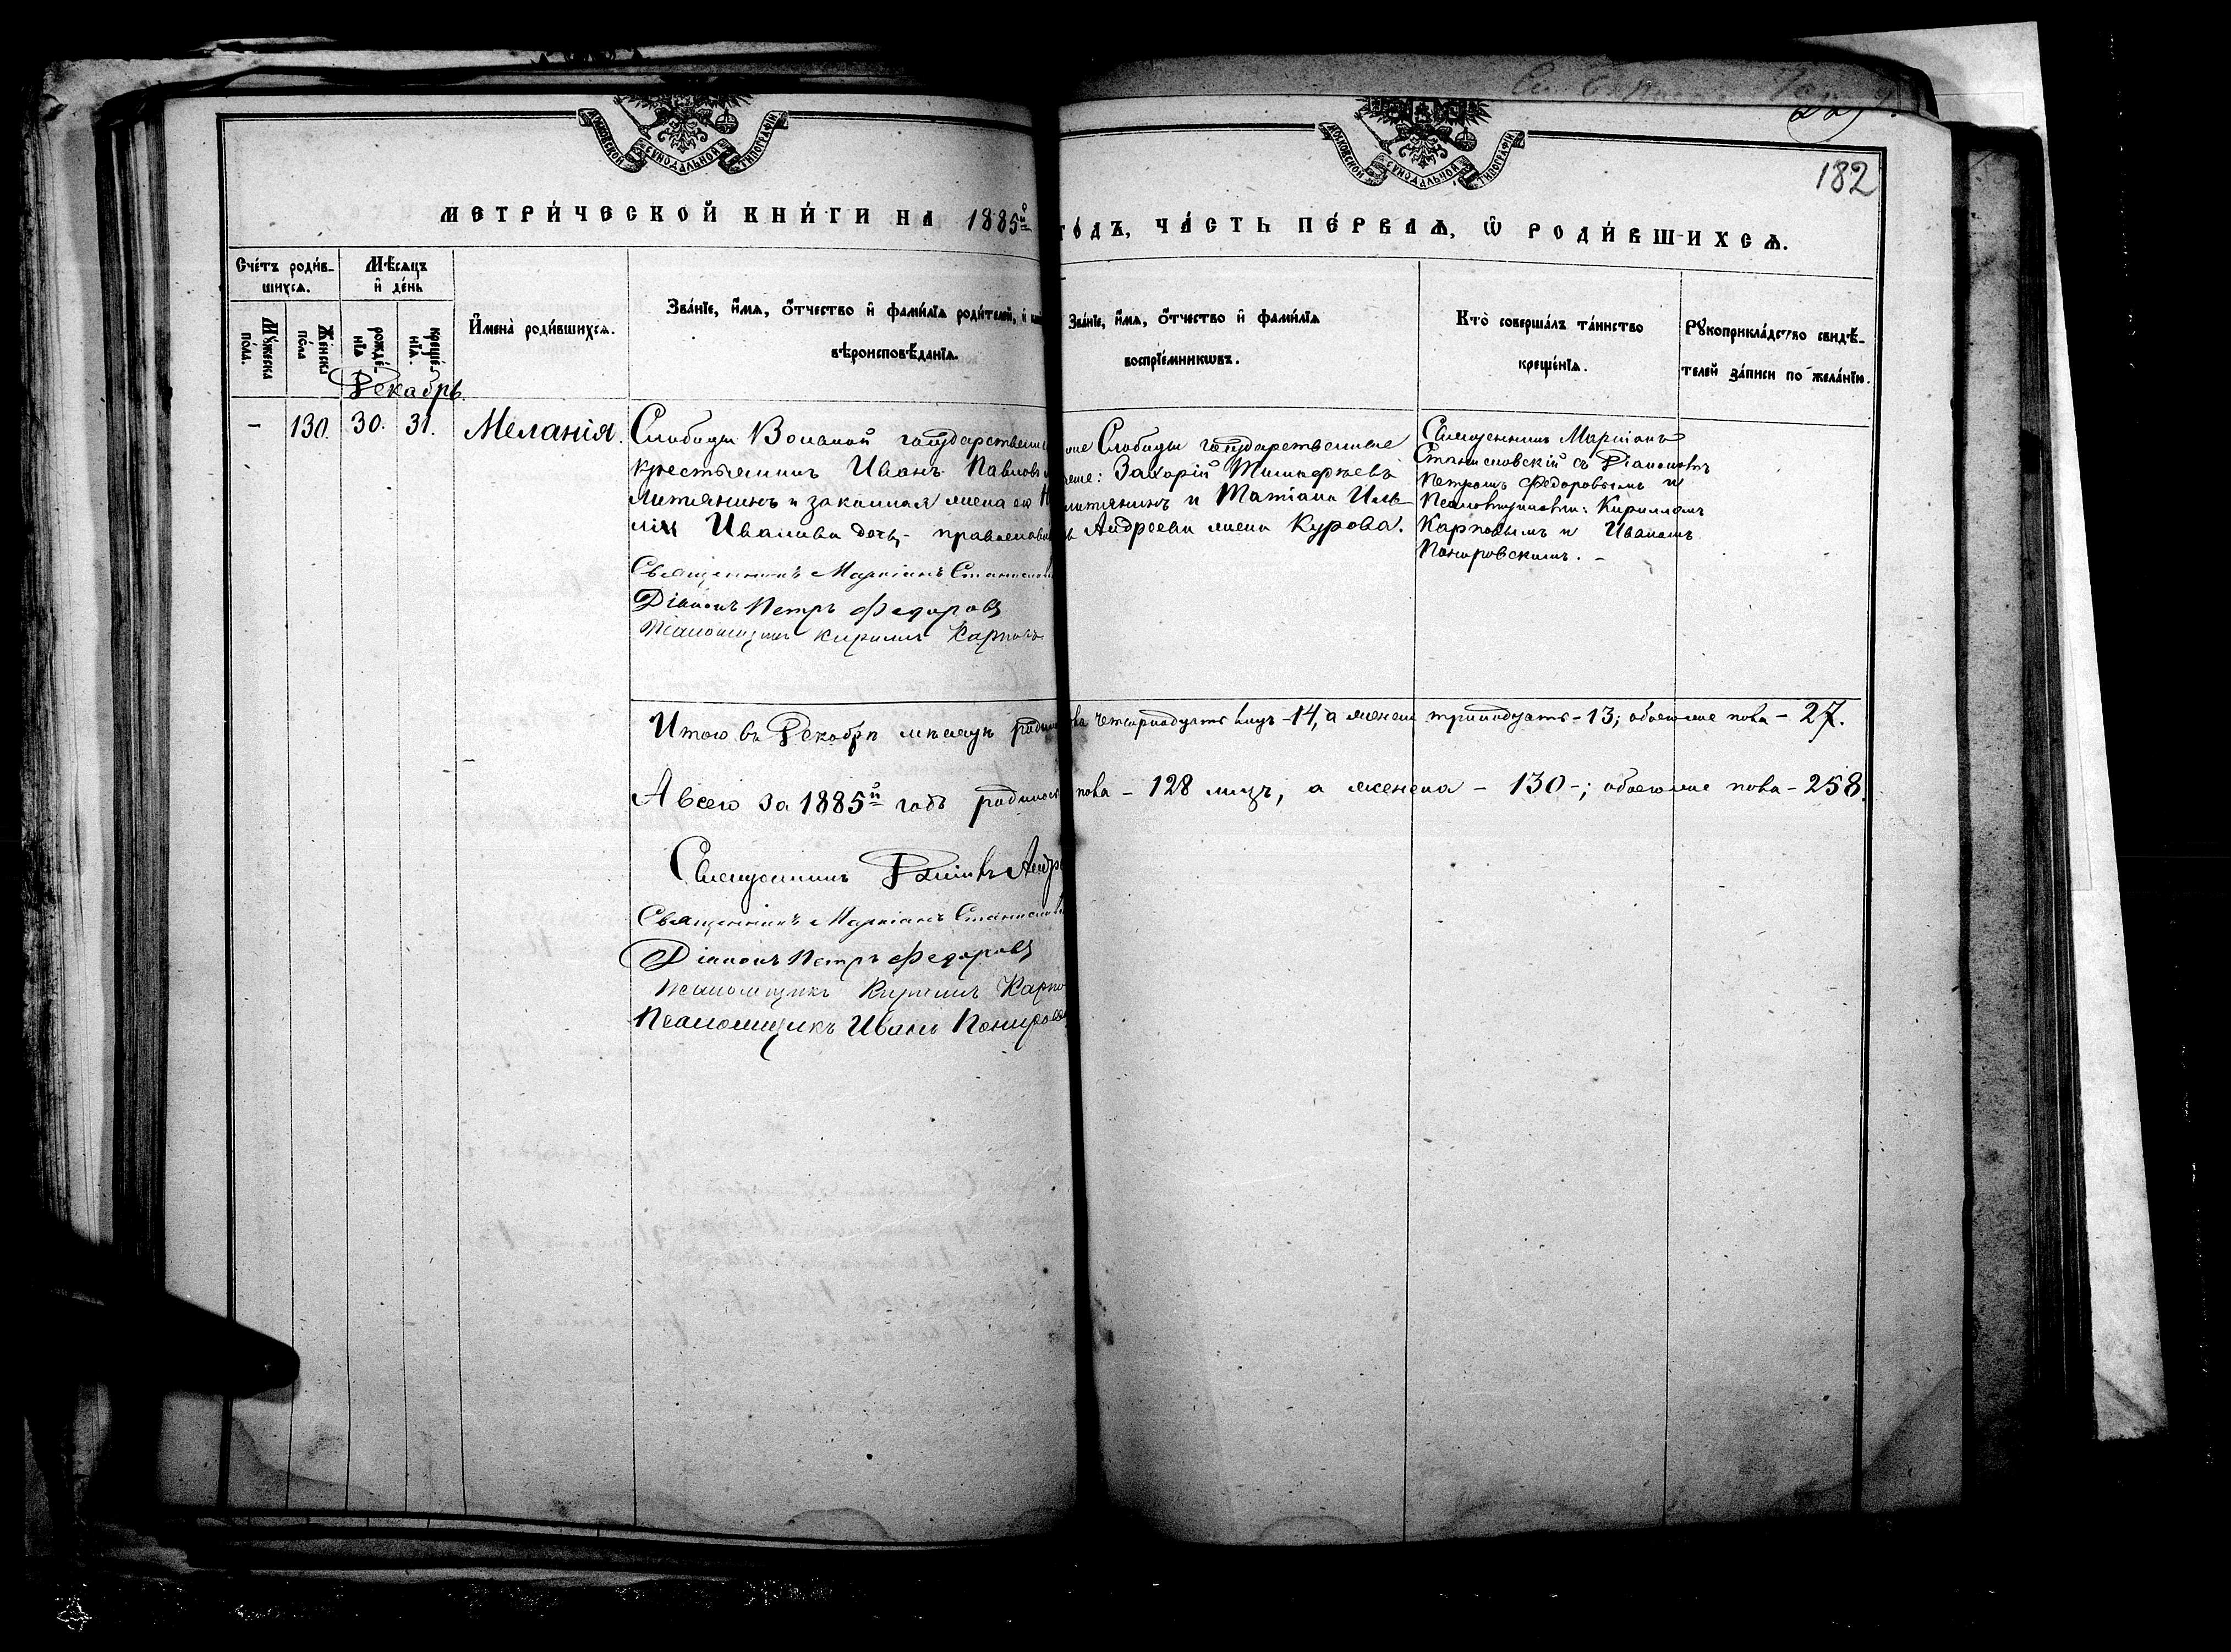 182
МОСКОВСКОЙ СѴНОДАЛЬНОЙ ТИПОГРАФІИ
МОСКОВСКОЙ СѴНОДАЛЬНОЙ ТИПОГРАФІИ
МЕТРИ́ЧЕСКОЙ КНИ́ГИ НА 1885й
ГО́ДЪ, ЧА́СТЬ ПЕ́РВАѦ, Ѡ РОДИ́ВШИХСѦ.
Сче́тъ роди́в-
шихсѧ.
Мѣ́сѧцъ
и де́нь
Мꙋ́жеска по́ла.
Же́нска по́ла
рожде́-нїѧ
креще́-нїѧ.
И҆мена̀ роди́вшихсѧ.
Зва́нїе, и҆́мѧ, ѻ҆́тчество и҆ фами́лїѧ роди́телей, и
вѣроисповѣ́данїѧ.
Зва́нїе, и҆́мѧ, ѻ҆́тчество и҆ фами́лїѧ
воспрїе́мникѡвъ.
Кто̀ соверша́лъ та́инство
креще́нїѧ.
Рꙋкоприкла́дство свидѣ́-
телей за́писи по жела́нїю.
Декабрь.
– 130. 30. 31. Меланія.
Слободы Вольной государствен
крестьянинъ Иванъ Павловъ
Литянинъ и законная жена его
Иванова дочь, православн
Священникъ Маркіанъ Станислав
Діаконъ Петръ Федоровъ
Псаломщикъ Кириллъ Карповъ
Слободы государственные
Захарій Тимофеевъ
и Татіана Иль
Андреева жена Курова.
Священникъ Маркіанъ
Станиславскій съ Діакономъ
Петромъ Федоровымъ и
Псаломщиками: Кирилломъ
Карповымъ и Иваномъ
Поныровскимъ. –
Итого въ Декабрѣ мѣсяцѣ родилось
четырнадцать лицъ – 14, а женска тринадцать – 13; обоего же пола – 27.
А всего за 1885й годъ родилось
пола – 128 лицъ, а женска – 130 –; обоего же пола – 258.
Священникъ Андр
Священникъ Маркіанъ Станислав
Діаконъ Петръ Федоровъ
Псаломщикъ Кириллъ Карпо
Псаломщикъ Иванъ Поныров